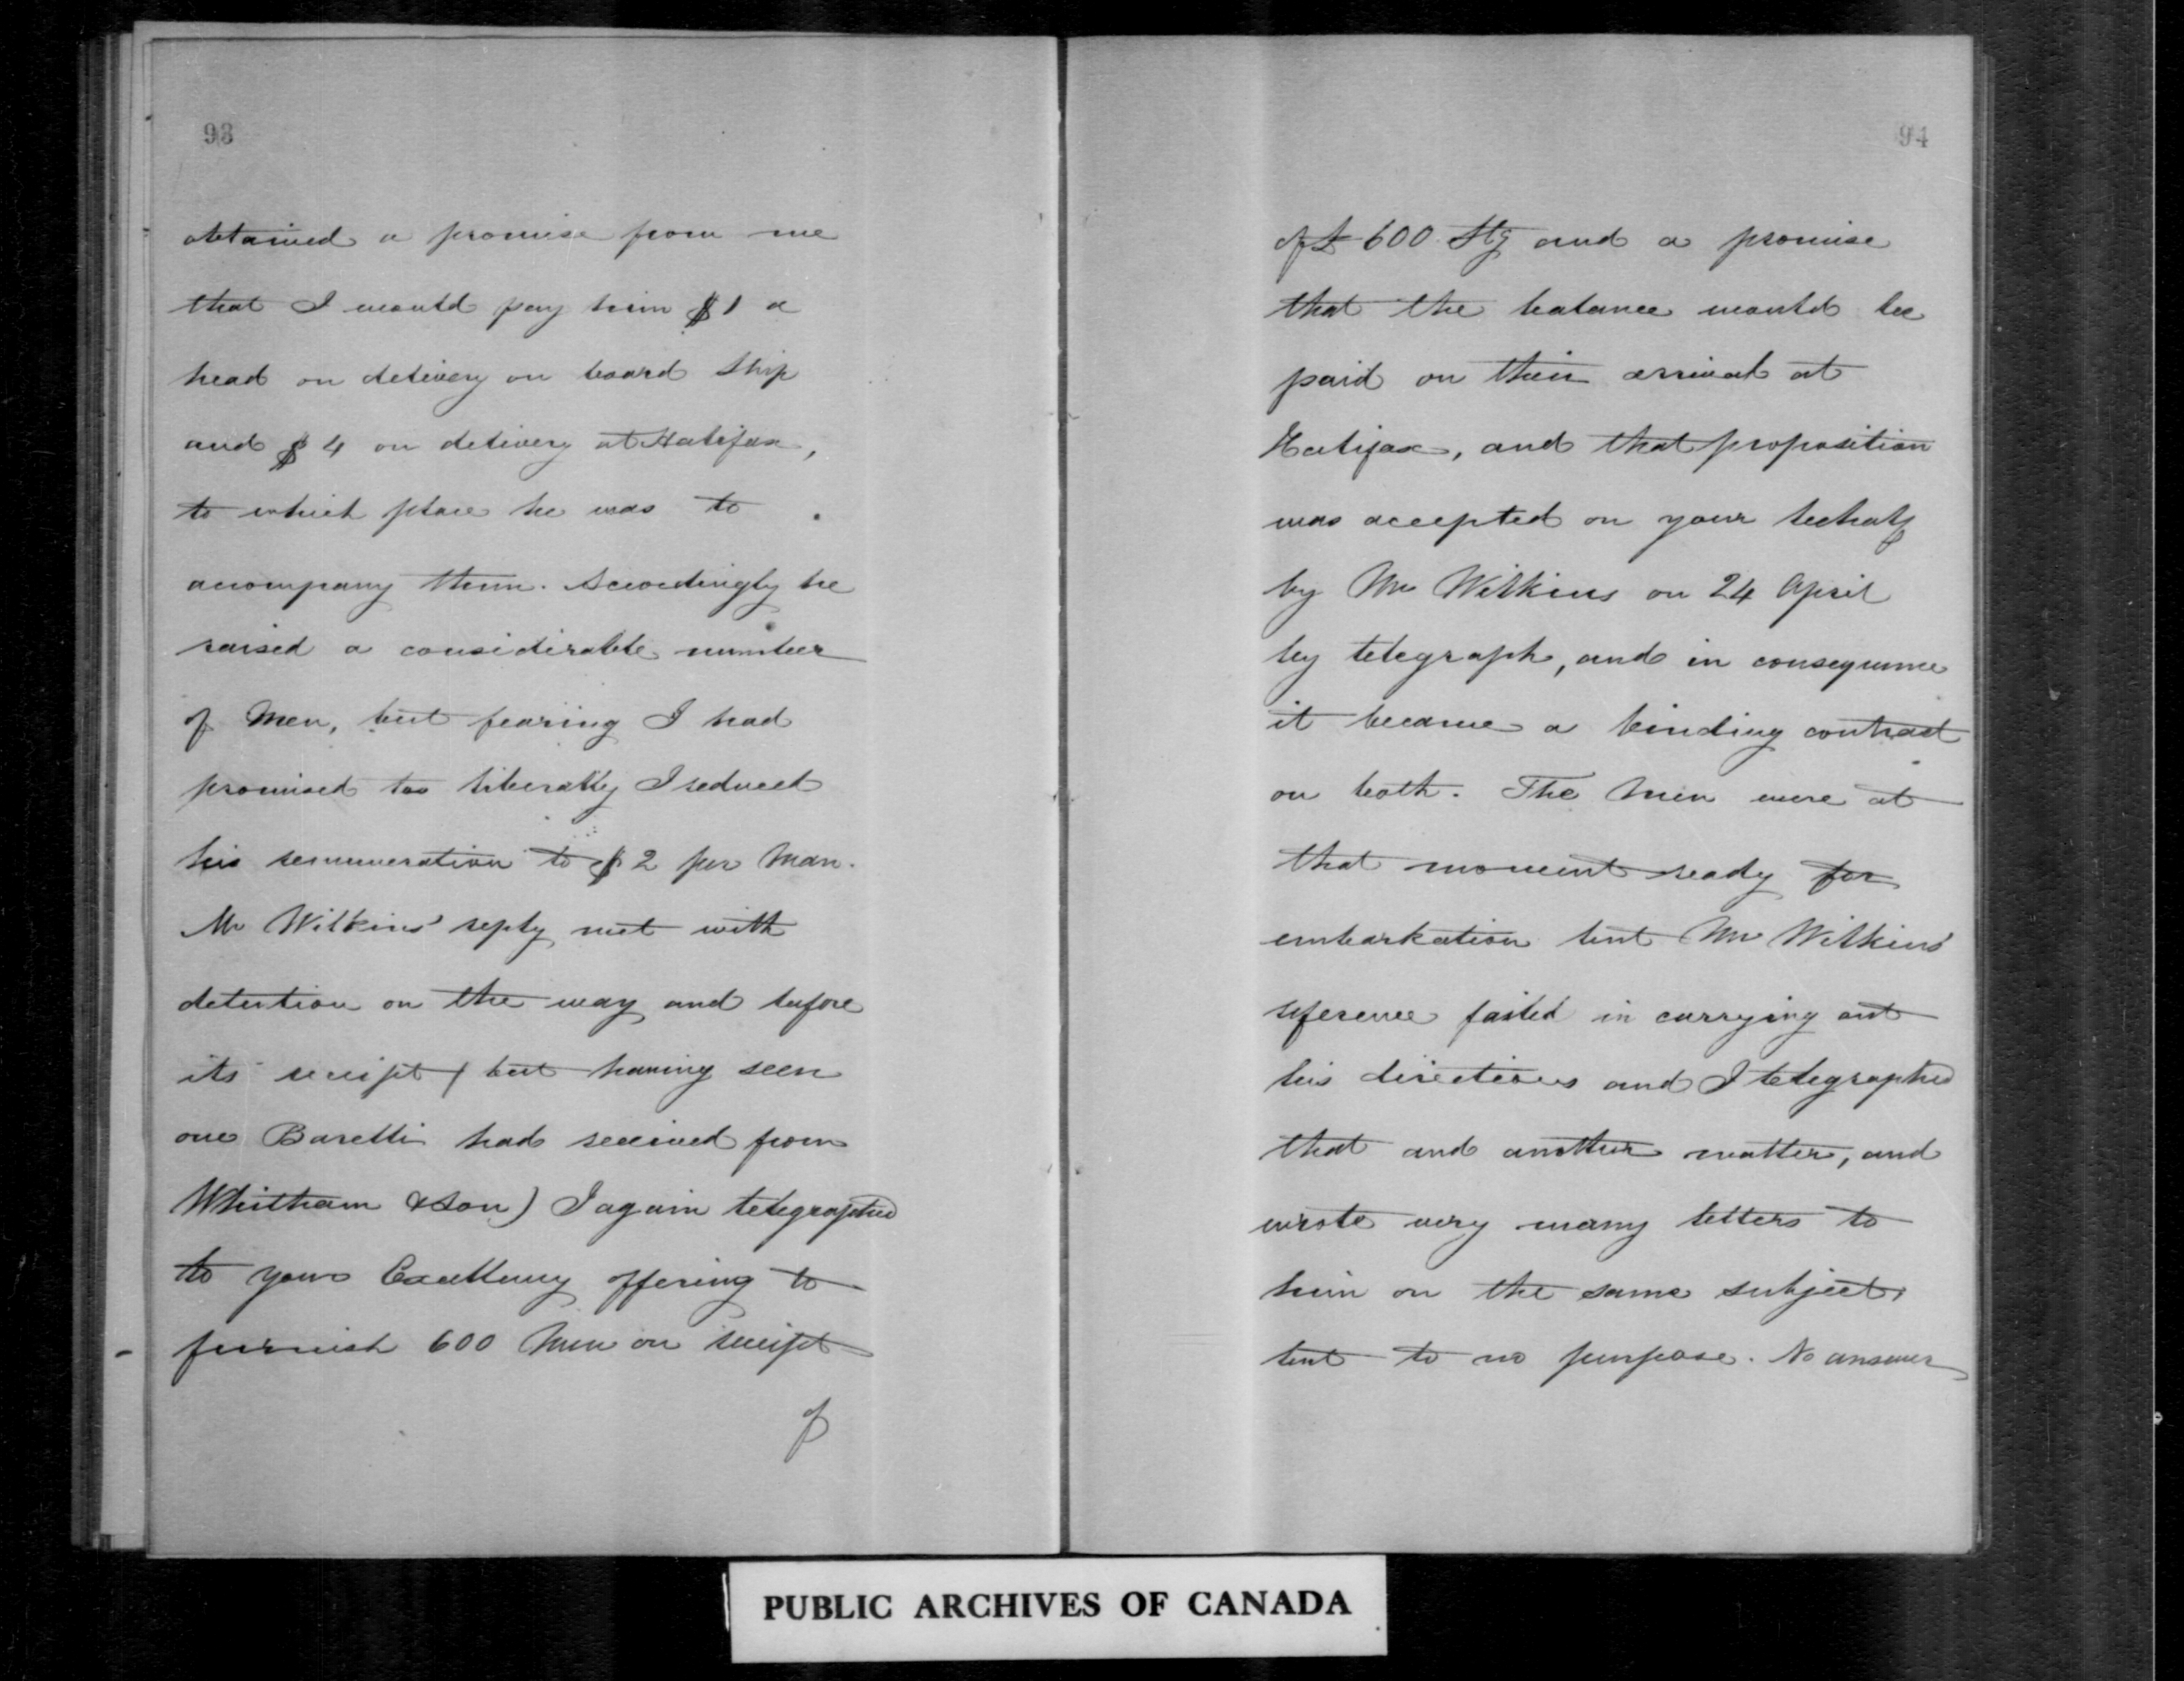 93
obtained a promise from me
that I would pay him $1 a
head on delivery on board ship
and $4 on delivery at Halifax,
to which place he was to
accompany them. Accordingly he
raised a considerable number
of Men, but fearing I had
promised too liberally I reduced
his remuneration to $2 per Man.
Mr Wilkins' reply met with
detention on the way and before
its receipt (but having seen
one Baretti had received from
Whitham & Son) I again telegraphed
to your Excellency offering to
furnish 600 Men on receipt
of
94
of £600 Stg and a promise
that the balance would be
paid on their arrival at
Halifax, and that proposition
was accepted on your behalf
by Mr Wilkins on 24 April
by telegraph, and in consequence
it became a binding contract
on both. The Men were at
that moment ready for
embarkation but Mr Wilkins'
reference failed in carrying out
his directions and I telegraphed
that and another matter, and
wrote very many letters to
him on the same subject,
but to no purpose. No answer
PUBLIC ARCHIVES OF CANADA